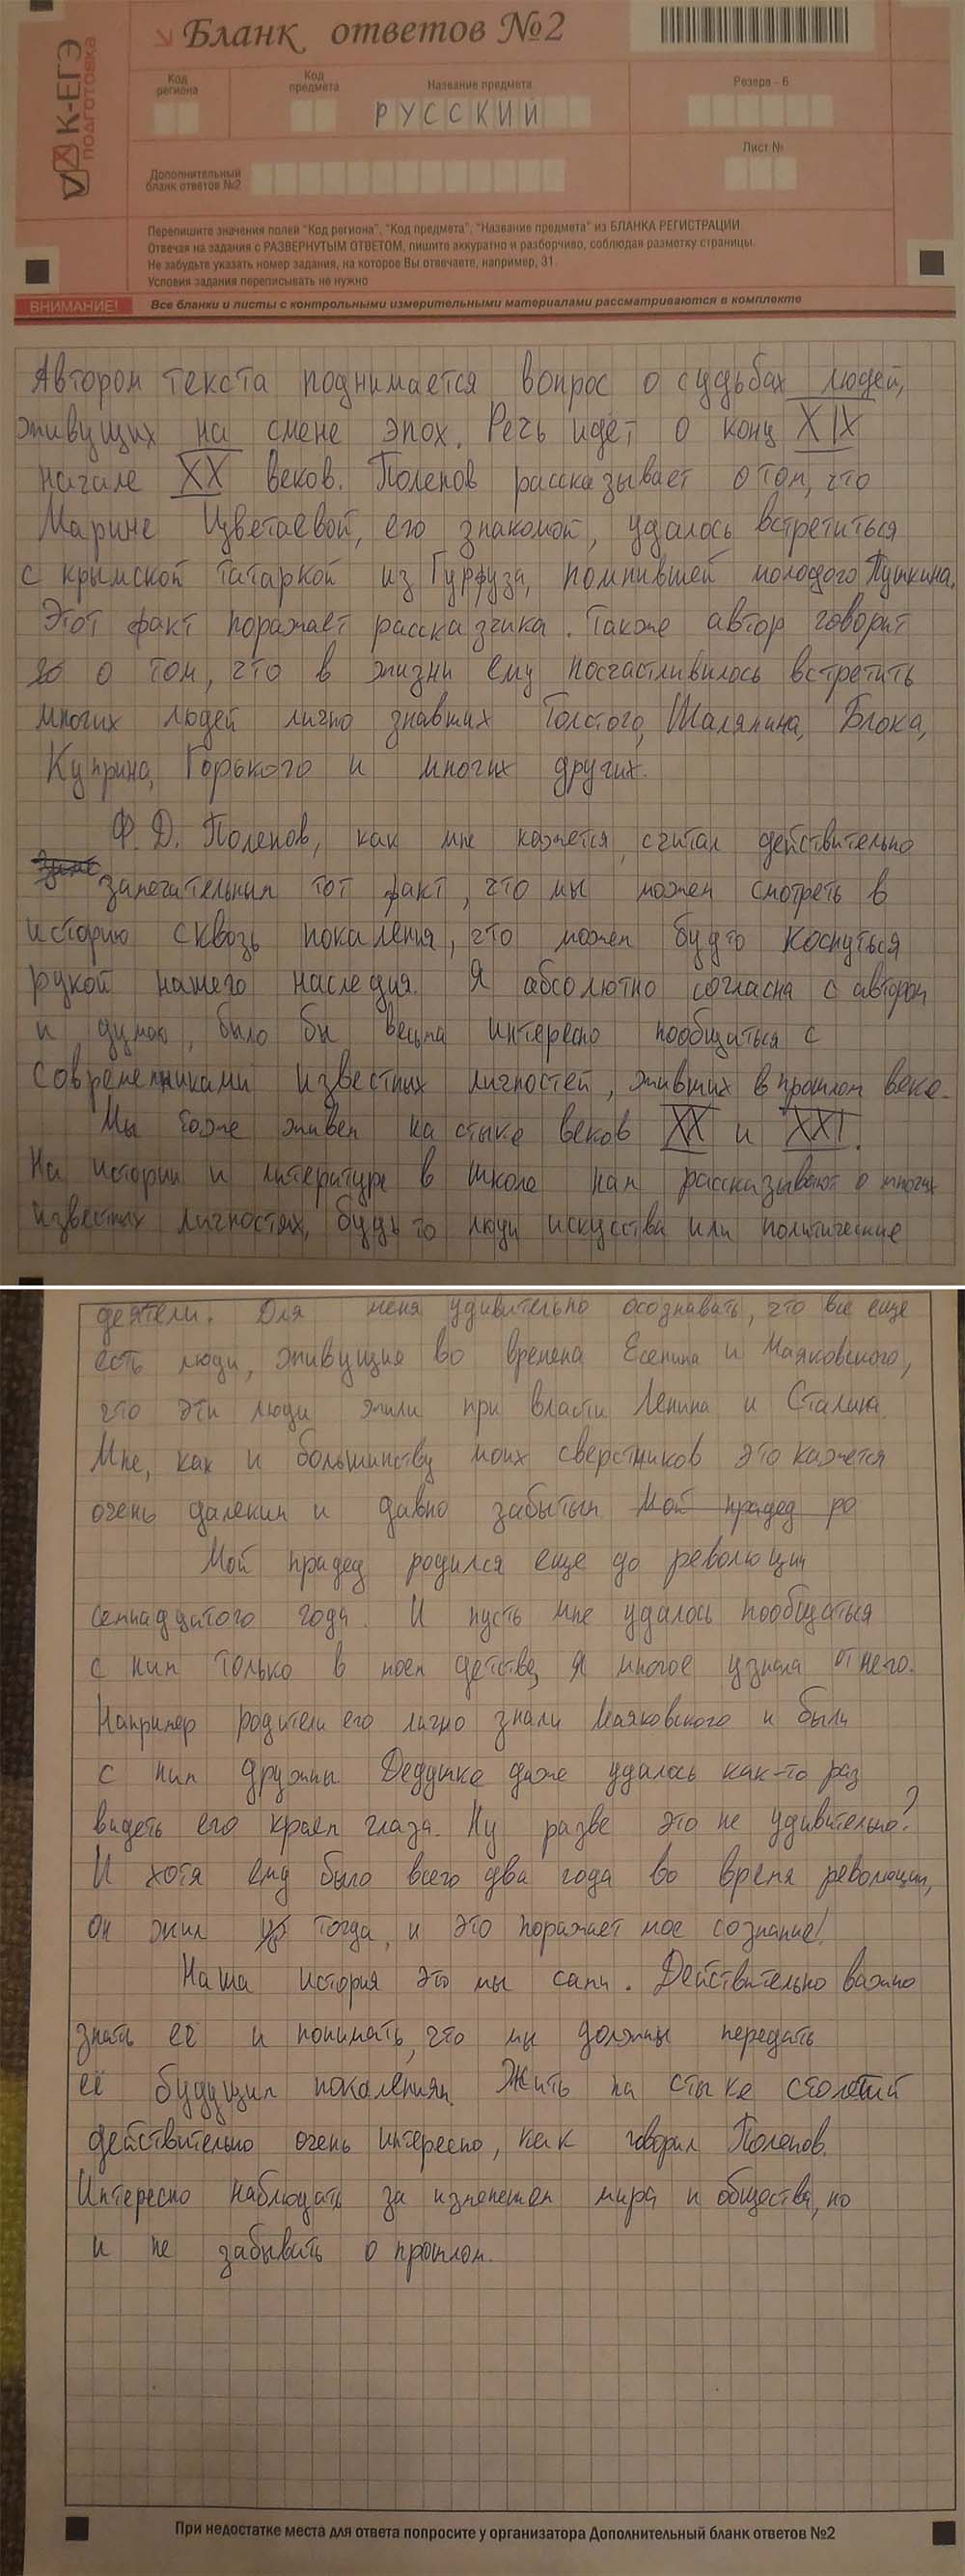 К-ЕГЭ
ПОДГОТОВКА
Бланк ответов №2
Код региона
Код предмета
Название предмета
РУССКИЙ
Резерв - 6
Дополнительный бланк ответов №2
Лист №
Перепишите значения полей "Код региона", "Код предмета", "Название предмета" из БЛАНКА РЕГИСТРАЦИИ.
Отвечая на задания с РАЗВЕРНУТЫМ ОТВЕТОМ, пишите аккуратно и разборчиво, соблюдая разметку страницы.
Не забудьте указать номер задания, на которое Вы отвечаете, например, 31.
Условия задания переписывать не нужно
ВНИМАНИЕ! Все бланки и листы с контрольными измерительными материалами рассматриваются в комплекте
Автором текста поднимается вопрос о судьбах людей,
живущих на смене эпох. Речь идет о конц XIX
начале XX веков. Поленов рассказывает о том, что
Марине Цветаевой, его знакомой, удалось встретиться
с крымской татаркой из Гурфуза, помнившей молодого Пушкина.
Этот факт поражает рассказчика. Также автор говорит
о том, что в жизни ему посчастливилось встретить
многих людей лично знавших Толстого, Шаляпина, Блока,
Куприна, Горького и многих других.
Ф. Д. Поленов, как мне кажется, считал действительно
замечательным тот факт, что мы можем смотреть в
историю сквозь поколения, что можем будто коснуться
рукой нашего наследия. Я абсолютно согласна с автором
и думаю, было бы весьма интересно пообщаться с
современниками известных личностей, живших в прошлом веке.
Мы тоже живем на стыке веков XX и XXI.
На истории и литературе в школе нам рассказывают о многих
известных личностях, будь то люди искусства или политические
деятели. Для меня удивительно осознавать, что все еще
есть люди, живущие во времена Есенина и Маяковского,
что эти люди жили при власти Ленина и Сталина.
Мне, как и большинству моих сверстников это кажется
очень далеким и давно забытым Мой прадед ро
Мой прадед родился еще до революции
семнадцатого года. И пусть мне удалось пообщаться
с ним только в моем детстве, я многое узнала от него.
Например родители его лично знали Маяковского и были
с ним дружны. Дедушке даже удалось как-то раз
видеть его краем глаза. Ну разве это не удивительно?
И хотя ему было всего два года во время революции,
он жил тогда, и это поражает мое сознание!
Наша история это мы сами. Действительно важно
знать её и понимать, что мы должны передать
её будущим поколениям. Жить на стыке столетий
действительно очень интересно, как говорил Поленов.
Интересно наблюдать за изменением мира и общества, но
и не забывать о прошлом.
При недостатке места для ответа попросите у организатора Дополнительный бланк ответов №2